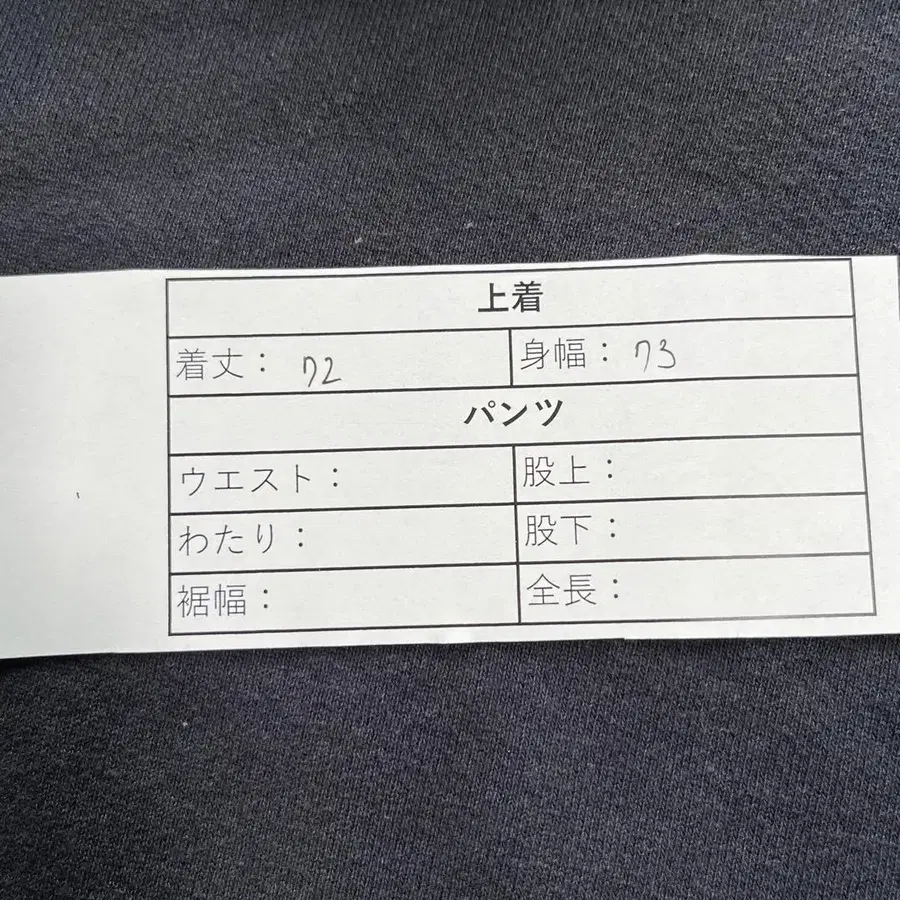 上着
着丈： 72 身幅： 73
パンツ
ウエスト： 股上：
わたり： 股下：
裾幅： 全長：